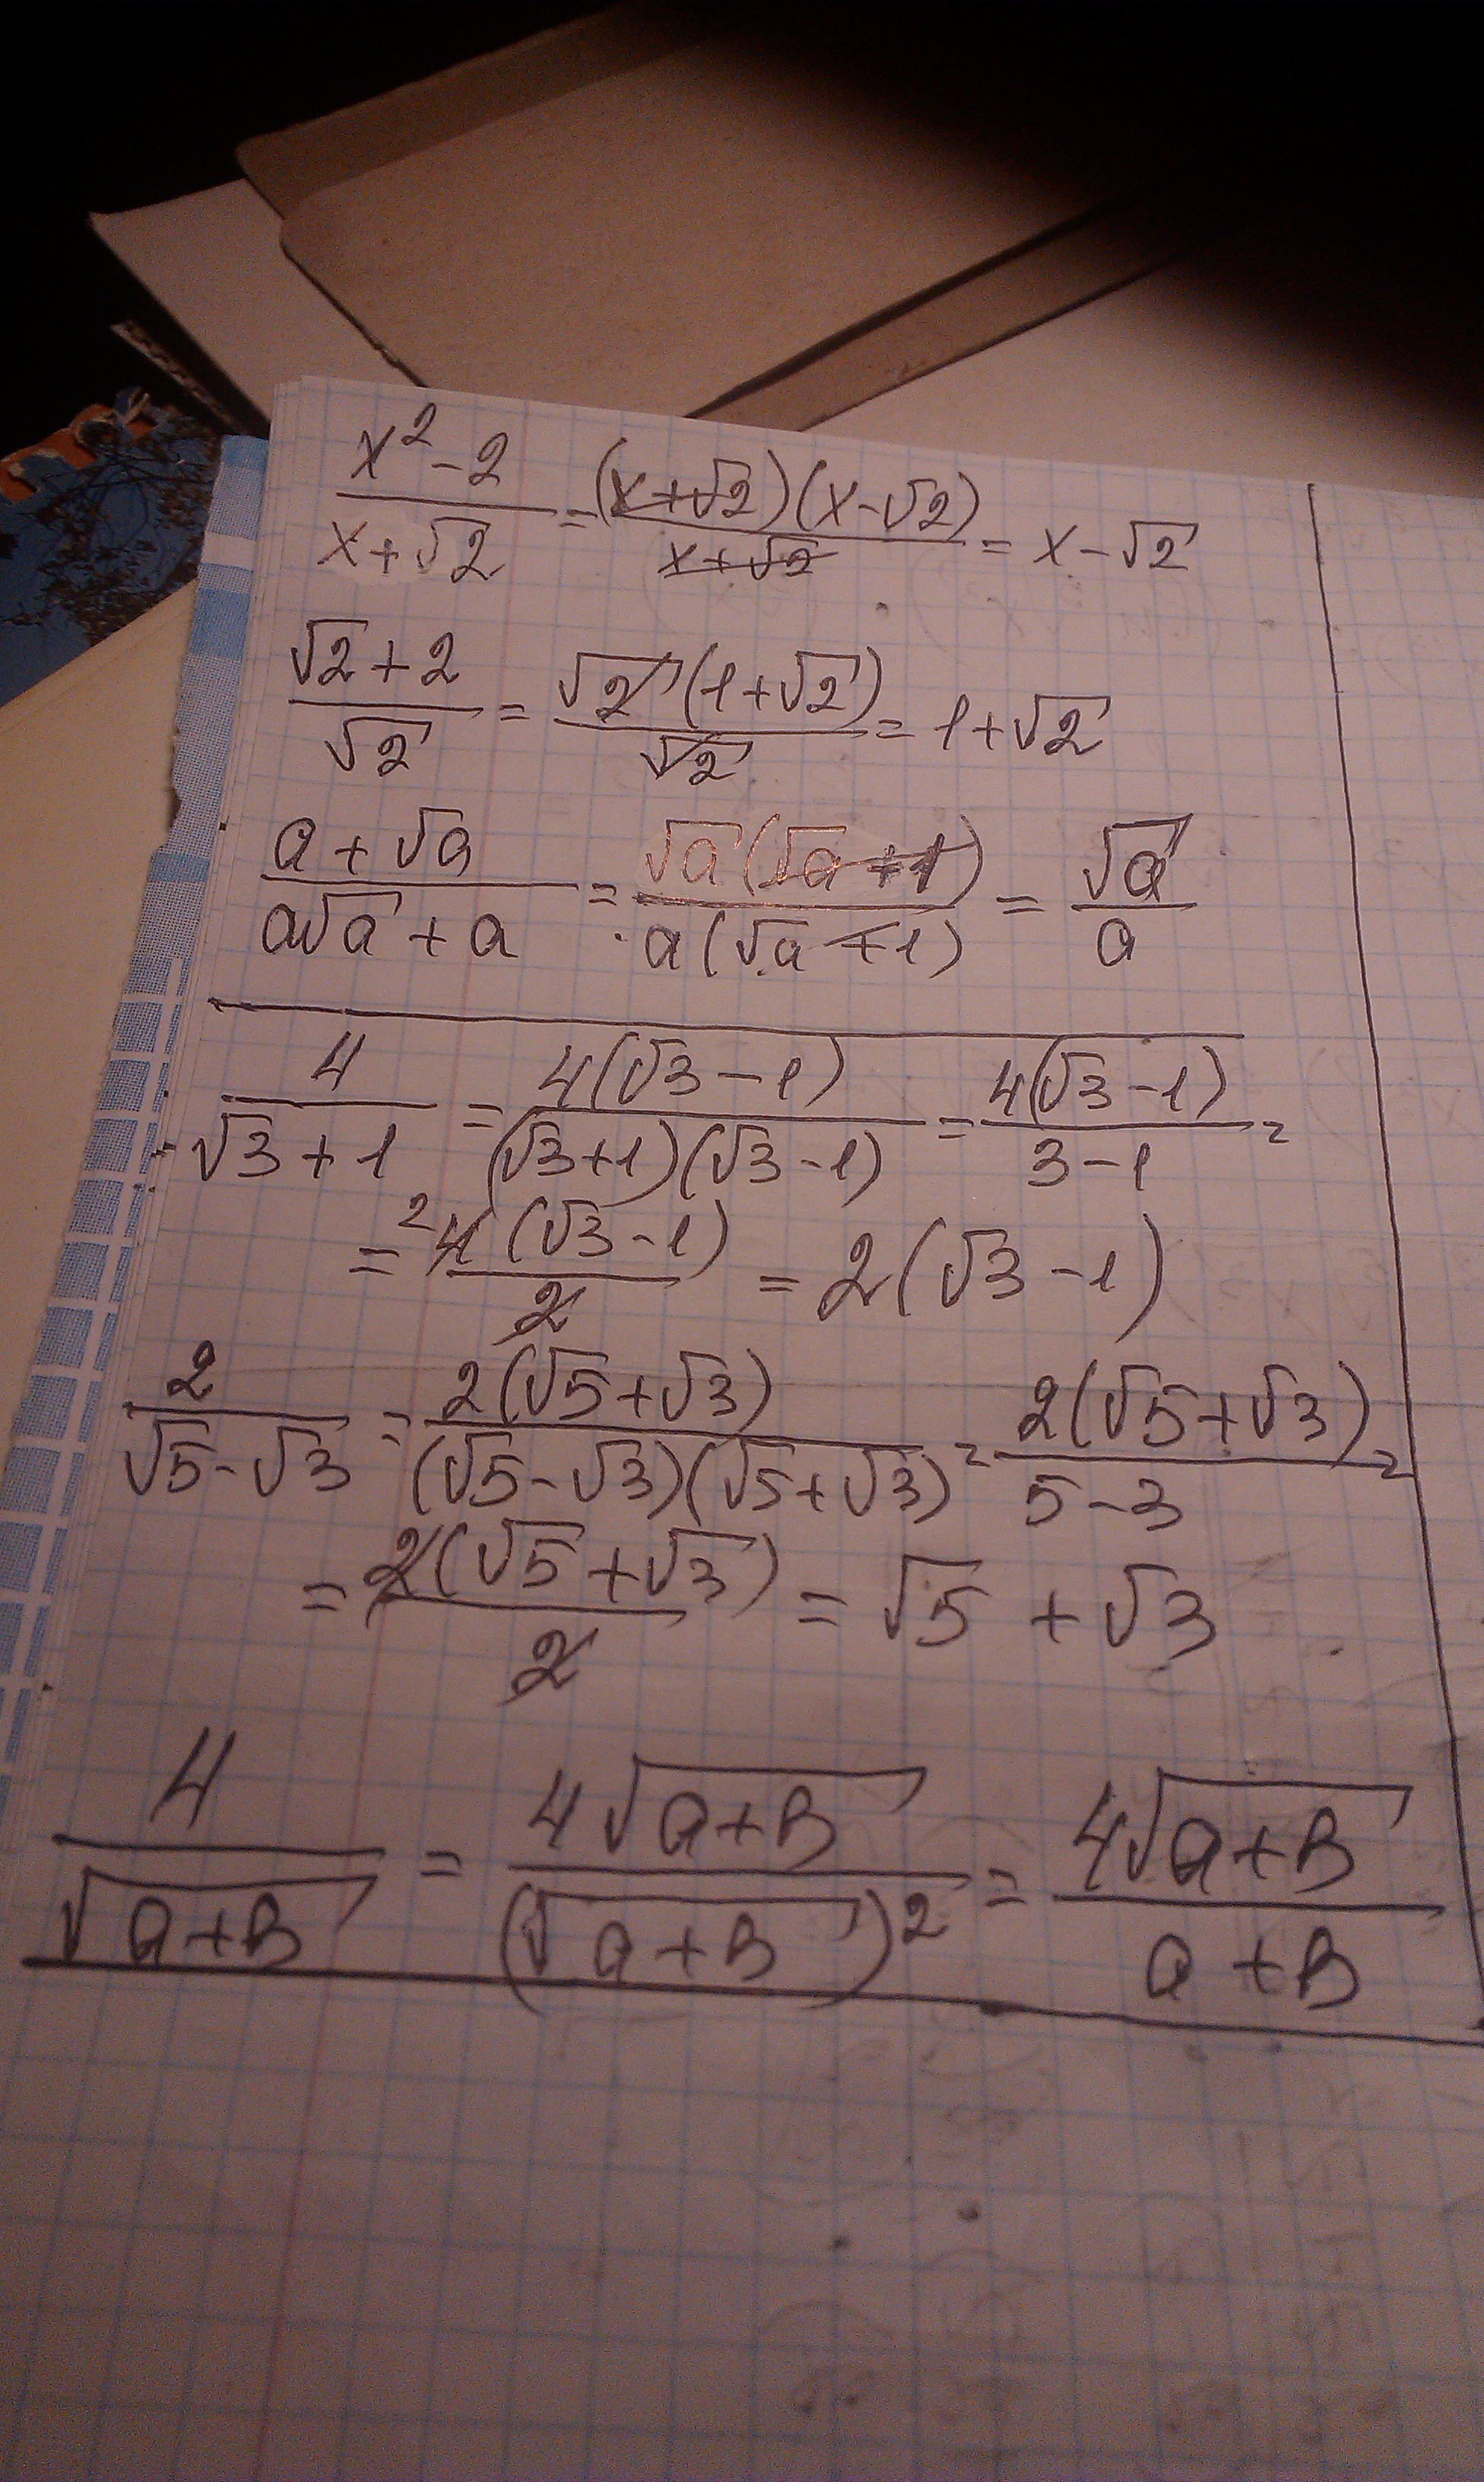 (x²-2)/(x+√2) = ((x+√2)(x-√2))/(x+√2) = x-√2
(√2+2)/√2 = (√2(1+√2))/√2 = 1+√2
(a+√a)/(a√a+a) = (√a(√a+1))/(a(√a+1)) = √a/a
4/(√3+1) = (4(√3-1))/((√3+1)(√3-1)) = (4(√3-1))/(3-1) =
= ²4(√3-1)/2 = 2(√3-1)
2/(√5-√3) = (2(√5+√3))/((√5-√3)(√5+√3)) = (2(√5+√3))/(5-3) =
= (2(√5+√3))/2 = √5+√3
4/√(a+в) = (4√(a+в))/(√(a+в))² = (4√(a+в))/(a+в)